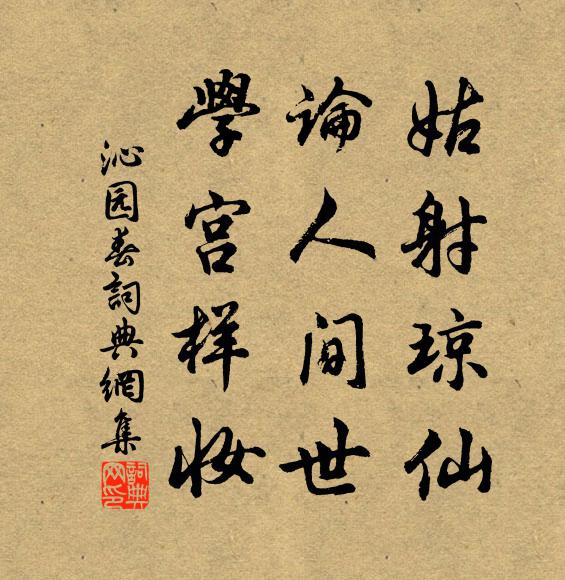 姑射琼仙
論人間世
學宫样妆
沁园春詞典網集
詞典网印